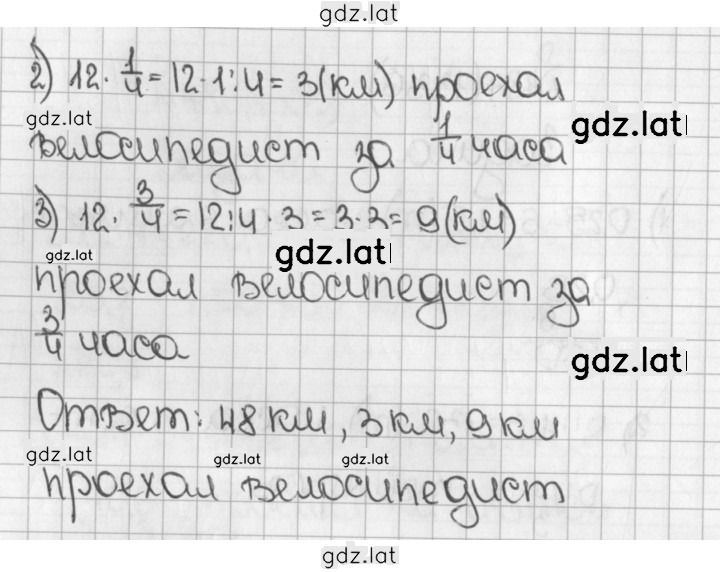 gdz.lat
2) 12 · 1/4 = 12 · 1 : 4 = 3 (км) проехал
gdz.lat
gdz.lat
велосипедист за 1/4 часа
3) 12 · 3/4 = 12 : 4 · 3 = 3 · 3 = 9 (км)
gdz.lat
gdz.lat
проехал велосипедист за
3/4 часа
gdz.lat
Ответ: 48 км, 3 км, 9 км
gdz.lat
gdz.lat
gdz.lat
проехал велосипедист
gdz.lat